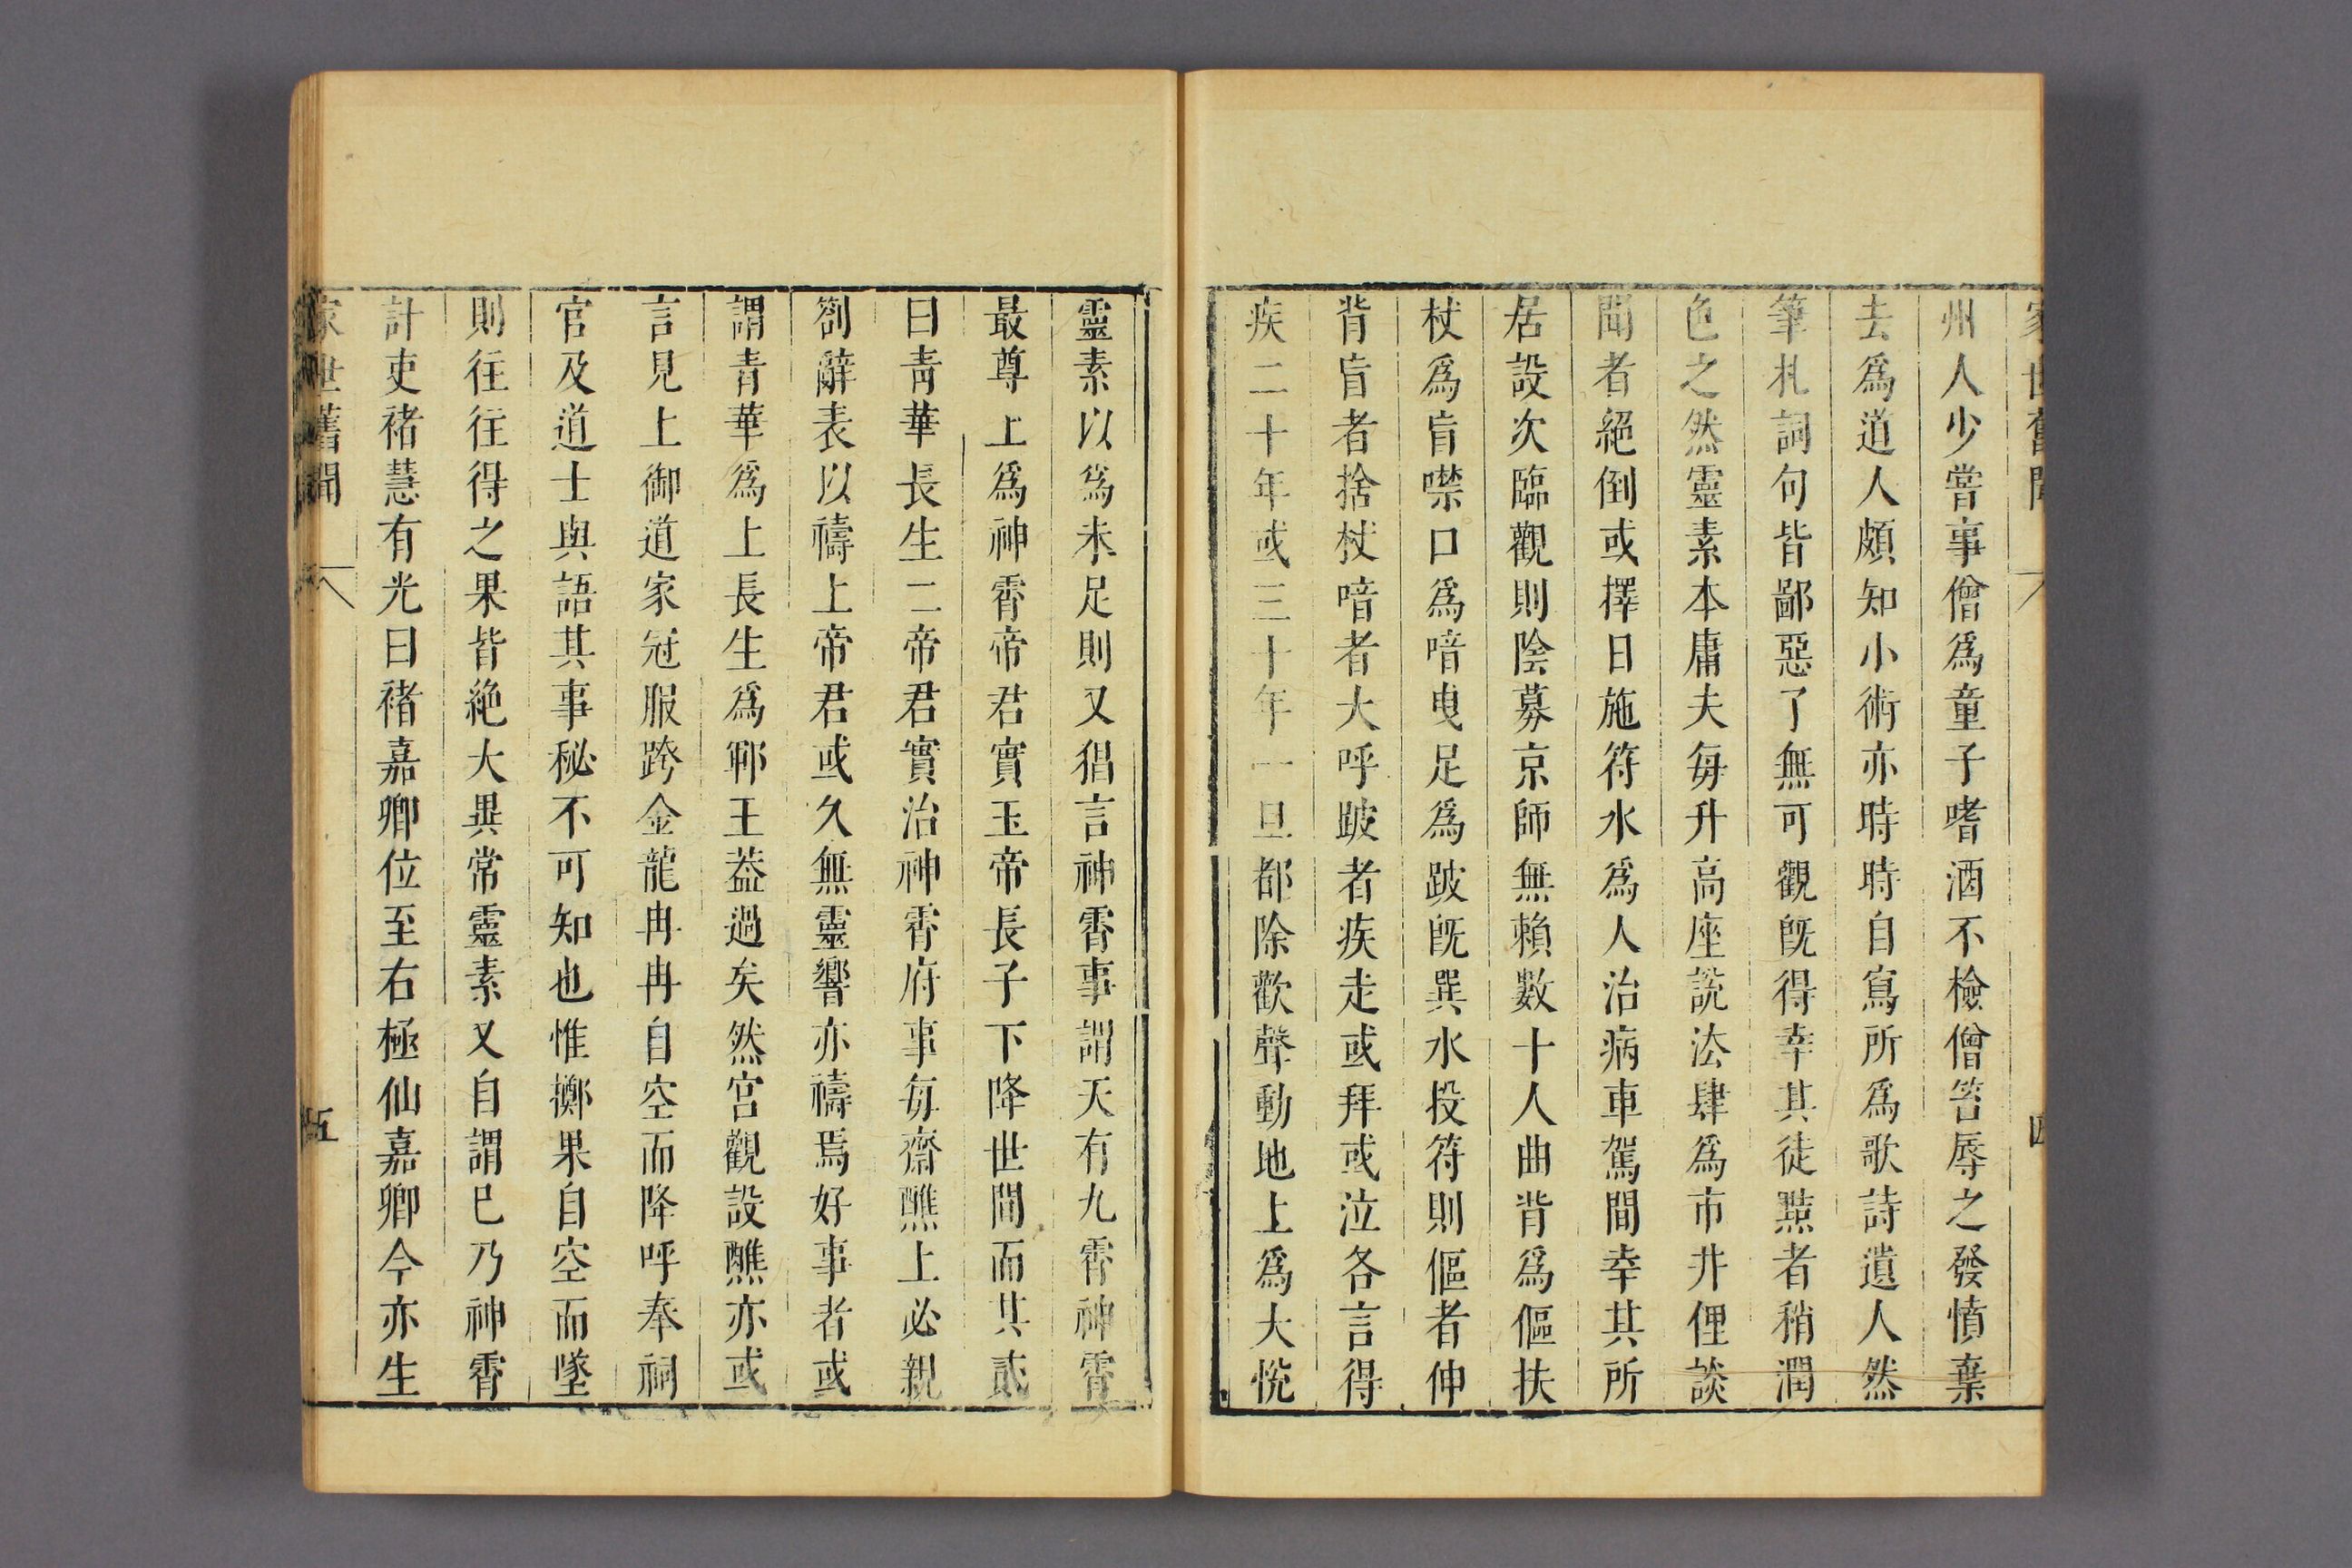 家世舊聞
四
州人少嘗事僧爲童子嗜酒不檢僧笞辱之發憤棄
去爲道人頗知小術亦時時自寫所爲歌詩遺人然
筆札詞句皆鄙惡了無可觀旣得幸其徒黠者稍潤
色之然靈素本庸夫每升高座說法肆爲市井俚談
聞者絕倒或擇日施符水爲人治病車駕間幸其所
居設次臨觀則陰募京師無賴數十人曲背爲傴扶
杖爲盲噤口爲喑曳足爲跛旣噀水投符則傴者伸
背盲者捨杖喑者大呼跛者疾走或拜或泣各言得
疾二十年或三十年一旦都除歡聲動地上爲大悅
靈素以爲未足則又猖言神霄事謂天有九霄神霄
最尊上爲神霄帝君實玉帝長子下降世間而其貳
曰靑華長生二帝君實治神霄府事每齋醮上必親
劄辭表以禱上帝君或久無靈響亦禱焉好事者或
謂青華爲上長生爲鄆王葢過矣然宮觀設醮亦或
言見上御道家冠服跨金龍冉冉自空而降呼奉祠
官及道士與語其事秘不可知也惟擲果自空而墜
則往往得之果皆絕大異常靈素又自謂已乃神霄
計吏褚慧有光曰褚嘉卿位至右極仙嘉卿今亦生
家世舊聞
五